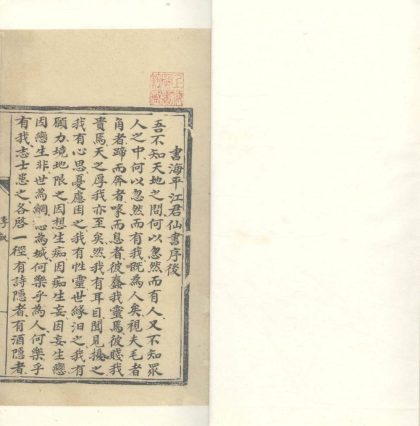 書海平江君仙書序後
吾不知天地之間何以忽然而有人又不知眾
人之中何以忽然而有我既為人矣視夫毛者
角者蹄而奔者喙而息者彼蠢我靈焉彼賤我
貴焉天之厚我亦至矣然我有耳目聞見擾之
我有心思憂慮困之我有性靈世緣汨之我有
願力境地限之因想生痴因痴生妄因妄生戀
因戀生非世為網心為城何樂乎為人何樂乎
有我志士患之各啓一徑有詩隱者有酒隱者